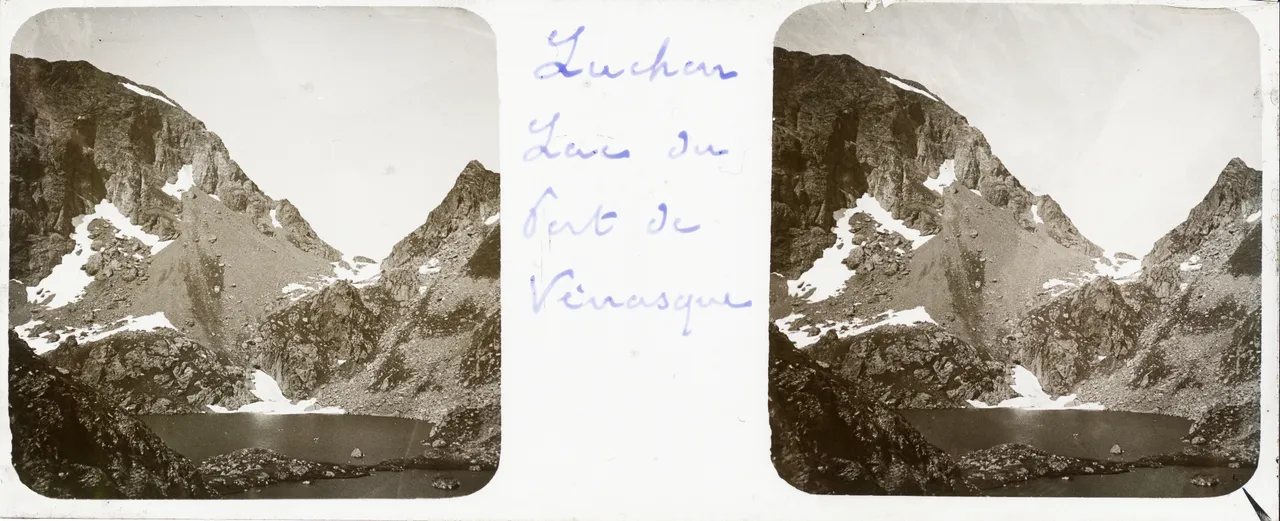 Luchon
Lac du
Port de
Vénasque